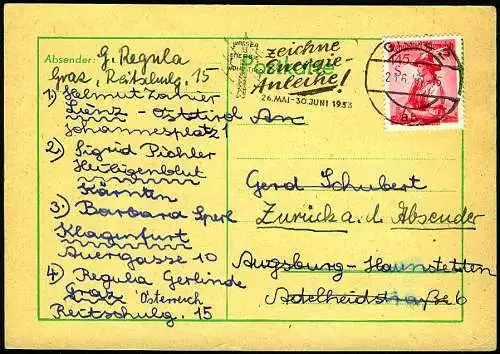 Absender: G. Regula
Graz, Reitschulg. 15
1) Helmut Zanier
Lienz - Osttirol
Johannesplatz 1
2) Sigrid Pichler
Heiligenblut
Kärnten
3. Barbara Sperl
Klagenfurt
Auergasse 10
4) Regula Gerlinde
Graz Österreich
Reitschulg. 15
Postkarte
zeichne
Energie-
Anleihe!
26. MAI - 30. JUNI 1953
WASSER
An
Gerd Schubert
Zurück a. d. Absender
Augsburg - Haunstetten
Adelheidstraße 6